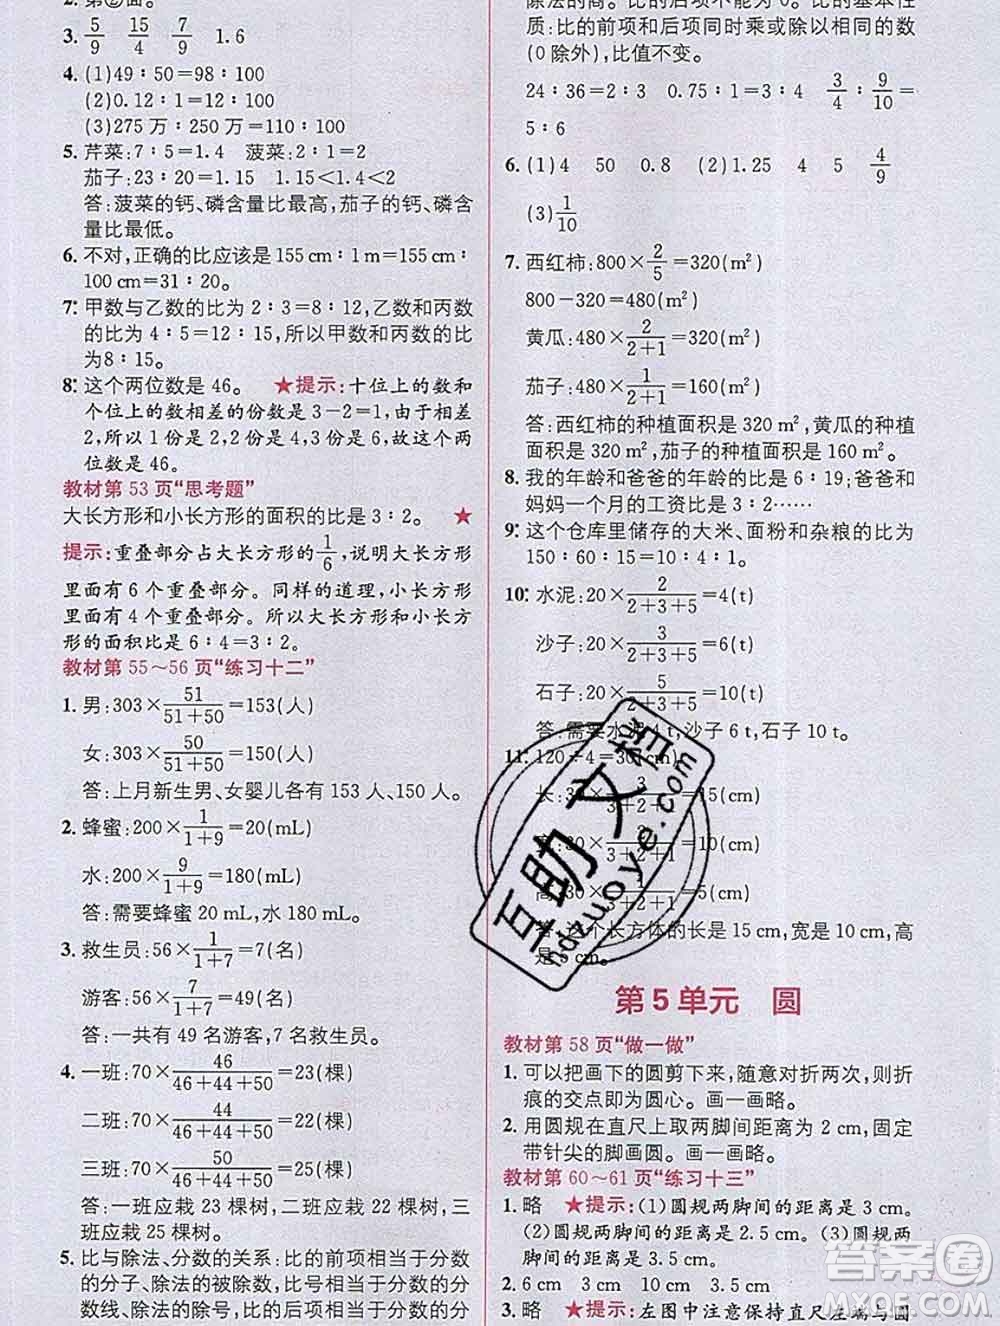 2. 第②面。
3. 5/9 15/4 7/9 1.6
4. (1)49∶50=98∶100
(2)0.12∶1=12∶100
(3)275万∶250万=110∶100
5. 芹菜:7∶5=1.4 菠菜:2∶5=0.4
茄子:23∶20=1.15 1.15<1.4<2.5
答:菠菜的钙、磷含量比最高,茄子的钙、磷含
量比最低。
6. 不对,正确的比应该是155 cm∶1 m=155 cm∶
100 cm=31∶20。
7. 甲数与乙数的比为2∶3=8∶12,乙数和丙数
的比为4∶5=12∶15,所以甲数和丙数的比
为8∶15。
8. 这个两位数是46。 ★提示:十位上的数和
个位上的数相差的份数是3-2=1,由于相差
2,所以1份是2,2份是4,3份是6,故这个两
位数是46。
教材第53页“思考题”
大长方形和小长方形的面积的比是3∶2。 ★
提示:重叠部分占大长方形的1/6,说明大长方形
里面有6个重叠部分。同样的道理,小长方形
里面有4个重叠部分。所以大长方形和小长方
形的面积比是6∶4=3∶2。
教材第55~56页“练习十二”
1. 男:303×51/(51+50)=153(人)
女:303×50/(51+50)=150(人)
答:上月新生男、女婴儿各有153人、150人。
2. 蜂蜜:200×1/(1+9)=20(mL)
水:200×9/(1+9)=180(mL)
答:需要蜂蜜20 mL,水180 mL。
3. 救生员:56×1/(1+7)=7(名)
游客:56×7/(1+7)=49(名)
答:一共有49名游客,7名救生员。
4. 一班:70×46/(46+44+50)=23(棵)
二班:70×44/(46+44+50)=22(棵)
三班:70×50/(46+44+50)=25(棵)
答:一班应栽23棵树,二班应栽22棵树,三
班应栽25棵树。
5. 比与除法、分数的关系:比的前项相当于分数
的分子、除法的被除数,比号相当于分数的分
数线、除法的除号,比的后项相当于分数的分
除法的商。比的后项不能为0。比的基本性
质:比的前项和后项同时乘或除以相同的数
(0除外),比值不变。
24∶36=2∶3 0.75∶1=3∶4 3/4∶9/10=
5∶6
6. (1)4 50 0.8 (2)1.25 4 5 4/9
(3)1/10
7. 西红柿:800×2/5=320(m²)
800-320=480(m²)
黄瓜:480×2/(2+1)=320(m²)
茄子:480×1/(2+1)=160(m²)
答:西红柿的种植面积是320 m²,黄瓜的种植
面积是320 m²,茄子的种植面积是160 m²。
8. 我的年龄和爸爸的年龄的比是6∶19;爸爸和
妈妈一个月的工资比是3∶2……
9. 这个仓库里储存的大米、面粉和杂粮的比为
150∶60∶15=10∶4∶1。
10. 水泥:20×2/(2+3+5)=4(t)
沙子:20×3/(2+3+5)=6(t)
石子:20×5/(2+3+5)=10(t)
答:需要水泥4 t,沙子6 t,石子10 t。
11. 120÷4=30(cm)
长:30×3/(3+2+1)=15(cm)
宽:30×2/(3+2+1)=10(cm)
高:30×1/(3+2+1)=5(cm)
答:这个长方体的长是15 cm,宽是10 cm,高
是5 cm。
第5单元 圆
教材第58页“做一做”
1. 可以把画下的圆剪下来,随意对折两次,则折
痕的交点即为圆心。画一画略。
2. 用圆规在直尺上取两脚间距离为2 cm,固定
带针尖的脚画圆。画一画略。
教材第60~61页“练习十三”
1. 略 ★提示:(1)圆规两脚间的距离是3 cm。
(2)圆规两脚间的距离是2.5 cm。(3)圆规两
脚间的距离是3.5 cm。
2. 6 cm 3 cm 10 cm 3.5 cm
3. 略 ★提示:左图中注意保持直尺左端与圆
互助文档
hdzuoye.com
答案圈
MXQE.COM